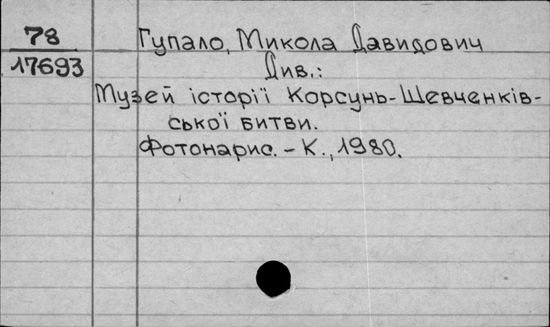 78 Гупало, Микола Давидович
17693 Див.:
Музей історії Корсунь-Шевченків-
ської битви.
Фотонарис. - К., 1980.